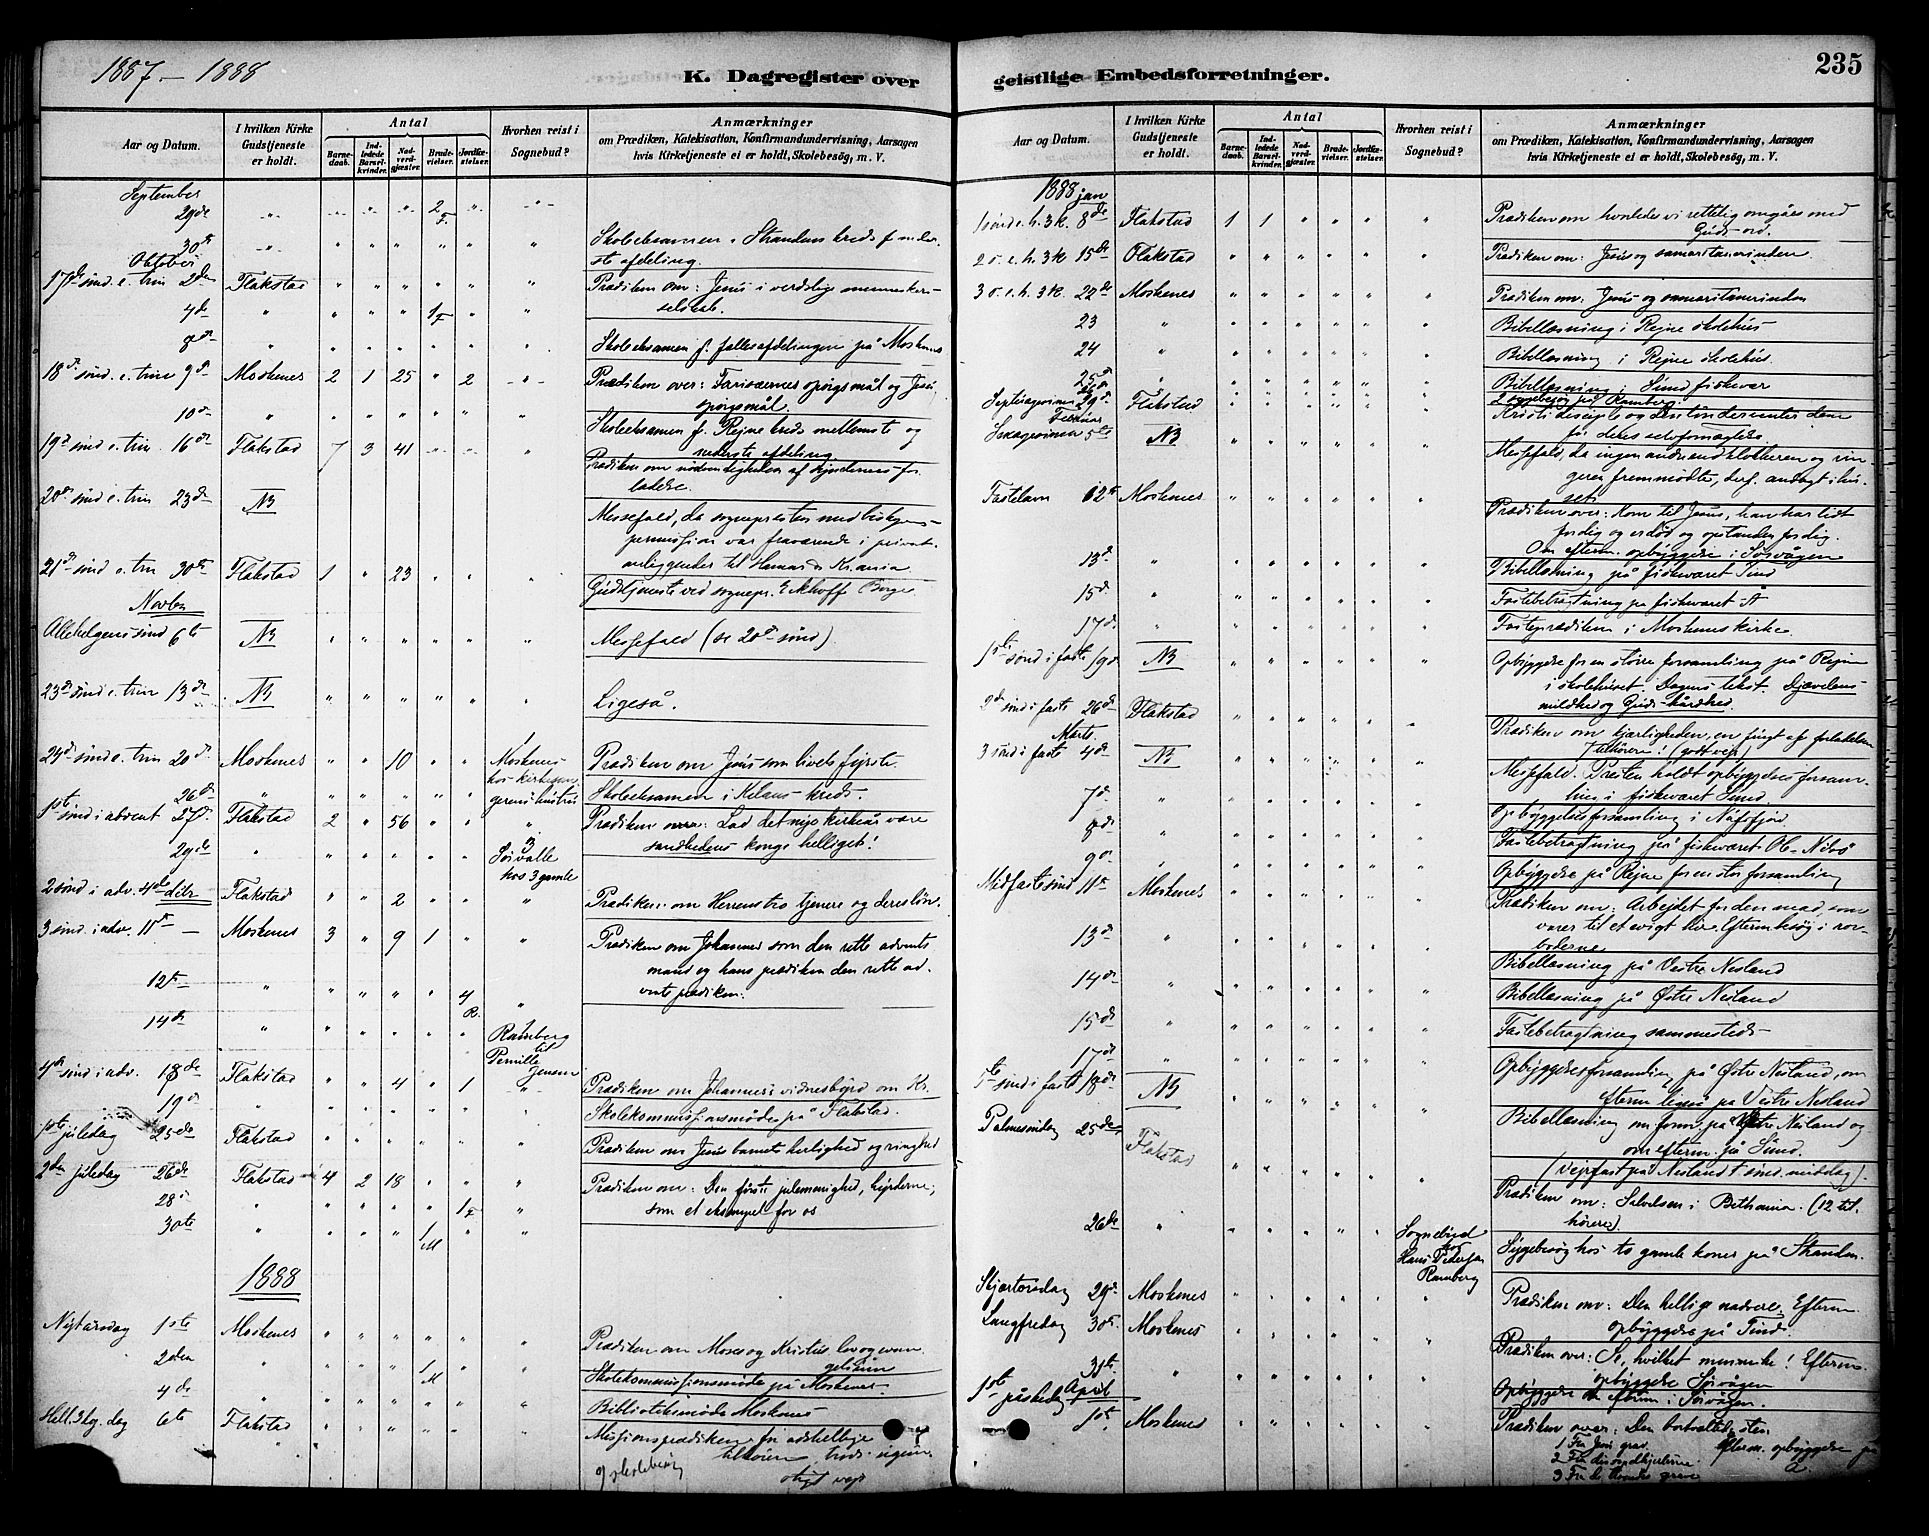 1887 - 1888
K. Dagregister over
geistlige Embedsforretninger.
235
Aar og Datum.
I hvilken Kirke Gudstjeneste er holdt.
Antal
Barnedaab.
Indledede Barselkvinder.
Nadverdgjæster.
Brudevielser.
Jordfæstelser.
Hvorhen reist i Sognebud?
Anmærkninger
om Prædiken, Katekisation, Konfirmandundervisning, Aarsagen
hvis Kirketjeneste ei er holdt, Skolebesög, m. V.
September
29de " " " " 2 " "
30te " " " " " " " Skoleeksamen i Strandens kreds f. neder-
ste afdeling.
Oktober
17de sönd. e. trin 2den Flakstad " " " " " " Prædiken om: Jesus i verdslige menneskers
selskab.
4de " " " " 1 " "
8de " " " " " " " Skoleeksamen f. fællesafdelingen på Moskenes
18de sönd. e. trin 9de Moskenes 2 1 25 " 2 " Prædiken over: Farisæernes spörgsmål og Jesu
spörgsmål.
10de " " " " " " " Skoleeksamen f. Rejne kreds mellemste og
nederste afdeling.
19de sönd e. trin. 16de Flakstad 7 3 41 " " " Prædiken om nödvendigheden af syndernes for-
ladelse.
20de sönd e. trin 23de NB Messefald, da sognepresten med biskopens
permission var fraværende i privat-
anliggender til Hamar & Kr.ania
21de sönd e. trin 30te Flakstad 1 " 23 " " " Gudstjeneste ved sognepr. Eckhoff Borge
Novbr
Allehelgens sönd 6te NB " " " " " " Messefald (se 20de sönd).
23de sönd e. trin 13de NB " " " " " " Ligeså.
24de sönd e. trin 20de Moskenes " " 10 " " Moskenes Prædiken om Jesus som livets fyrste.
hos kirkesan-
gerens hustru
26de " " " " " " Skoleeksamen i kreds.
1ste sönd i advent 27de Flakstad 2 " 56 " " " Prædiken over: Lad det nye kirkeår være
sandhedens konge helliget!
29de " " " " " " Sörvalle
hos 3 gamle
2 sönd i adv. 4de debr Flakstad " " 2 " " " Prædiken om Herrens tro tjenere og deres lön.
3 sönd. i adv. 11te - Moskenes 3 " 9 1 " " Prædiken om Johannes som den rette advents
mand og hans prædiken den rette ad-
vents prædiken.
12te " " " " " 4 "
R.
14de " " " " " " Ramberg
til
Pernille
Jensen
4de sönd i adv. 18de Flakstad " " 4 " 1 " Prædiken om Johannes's vidnesbyrd om Kr.
19de " " " " " " " Skolekommissionsmöde på Flakstad.
1ste juledag 25de Flakstad " " " " " " Prædiken om Jesus barnets herlighed og ringhed
2den juledag 26de Flakstad 4 2 18 " " " Prædiken om: Den förste julemenighed, hyrderne,
som et eksempel for os
28de " " " " " 1 "
30te " " " " 1 " "
M
1888
Nytårsdag 1ste Moskenes " " " " " " Prædiken om Moses og Kristus, lov og evan-
gelium
2den " " " " 1 " " Skolekommissionsmöde på Moskenes.
M
4de " " " " " " " Biblioteksmöde Moskenes
Hell. 3 kg. dag 6te Flakstad " " " " " " Missionsprædiken for
tilhörere, trods ugun-
stigt vejr
Aar og Datum.
I hvilken Kirke Gudstjeneste er holdt.
Antal
Barnedaab.
Indledede Barselkvinder.
Nadverdgjæster.
Brudevielser.
Jordfæstelser.
Hvorhen reist i Sognebud?
Anmærkninger
om Prædiken, Katekisation, Konfirmandundervisning, Aarsagen
hvis Kirketjeneste ei er holdt, Skolebesög, m. V.
1888 jan
1 sönd e. h. 3 k. 8de Flakstad 1 1 " " " " Prædiken om hvorledes vi rettelig omgåes med
Guds ord.
2 s. e. h. 3 k 15de Flakstad " " " " " " Prædiken om: Jesus og samaritanerinden
3 s. e. h. 3 k. 22de Moskenes " " " " " " Prædiken om: Jesus og samaritanerinden
23 " " " " " " " Bibellæsning i Rejne skolehus
24 " " " " " " " Bibellæsning i Rejne skolehus.
25de " " " " " " " Bibellæsning i Sund fiskevær
2 sygebesög på Ramberg.
Septuagesima 29de Flakstad " " " " " " Kristi disciple og
for deres selvfornægtelse.
Februar
Sexagesima 5te NB " " " " " " Messefald, da ingen andre end klokkeren og rin-
geren fremmödte, derf. andagt i hu-
set
Fastelavn 12te Moskenes " " " " " " Prædiken over: Kom til Jesus, han har lidt
for dig og er död og opstanden for dig.
Om efterm. opbyggelse i Sörvågen
13de " " " " " " " Bibellæsning på fiskeværet Tind
15de " " " " " " " Fastebetragtning på fiskeværet Å
17de " " " " " " " Fasteprædiken i Moskenes kirke.
1ste sönd i faste 19de NB " " " " " " Opbyggelse for en större forsamling på Rejne
i skolehuset. Dagens tekst. Djævelens
mildhed og Guds hårdhed.
2de sönd i faste 26de Flakstad " " " " " " Prædiken om kjærligheden, en frugt af forladelsen
7 tilhörere! (godt vejr)
Marts.
3 sönd i faste 4de NB " " " " " " Messefald. Presten holdt opbyggelsesforsam-
ling i fiskeværet Sund.
7de " " " " " " " Opbyggelsesforsamling i Nufsfjord
8de " " " " " " " Fastebetragtning på fiskeværet
9de " " " " " " " Opbyggelse på Rejne for en stor forsamling
Midfaste sönd 11te Moskenes " " " " " " Prædiken om: Arbejdet for den mad, som
varer til et evigt liv. Efterm besög i ror-
boderne
13de " " " " " " " Bibellæsning på Vestre Nesland
14de " " " " " " " Bibellæsning på Østre Nesland
15de " " " " " " " Fastebetragtning sammesteds
17de " " " " " " " Opbyggelsesforsamling på Østre Nesland, om
efterm ligeså på Vestre Nesland
5te sönd i faste 18de NB " " " " " " Bibellæsning om form. på Østre Nesland og
om efterm. på Sund.
(Vejrfast på Nesland t. sönd. middag).
Palmesöndag 25de Flakstad " " " " " " Prædiken om: Salvelsen i Bethania. (12 til-
hörere).
26de " " " " " " Sognebud
hos
Hans Pedersen
Ramberg Sygebesög hos to gamle koner på Stranden.
Skjærtorsdag 29de Moskenes " " " " " " Prædiken om: Den hellige nadvere. Efterm
opbyggelse på Tind.
Langfredag 30te Moskenes " " " " " " Prædiken over: Se, hvilket menneske! Efterm.
opbyggelse Sörvågen
31te " " " " " " " Opbyggelse i Sörvågen.
1ste påskedag April
1ste Moskenes " " " " " " Prædiken over: Den bortvæltede sten
1 Fra Jesu grav Efterm. opbyggelse på
2 Fra disciplhjerterne. Å.
3 Fra de troendes grave